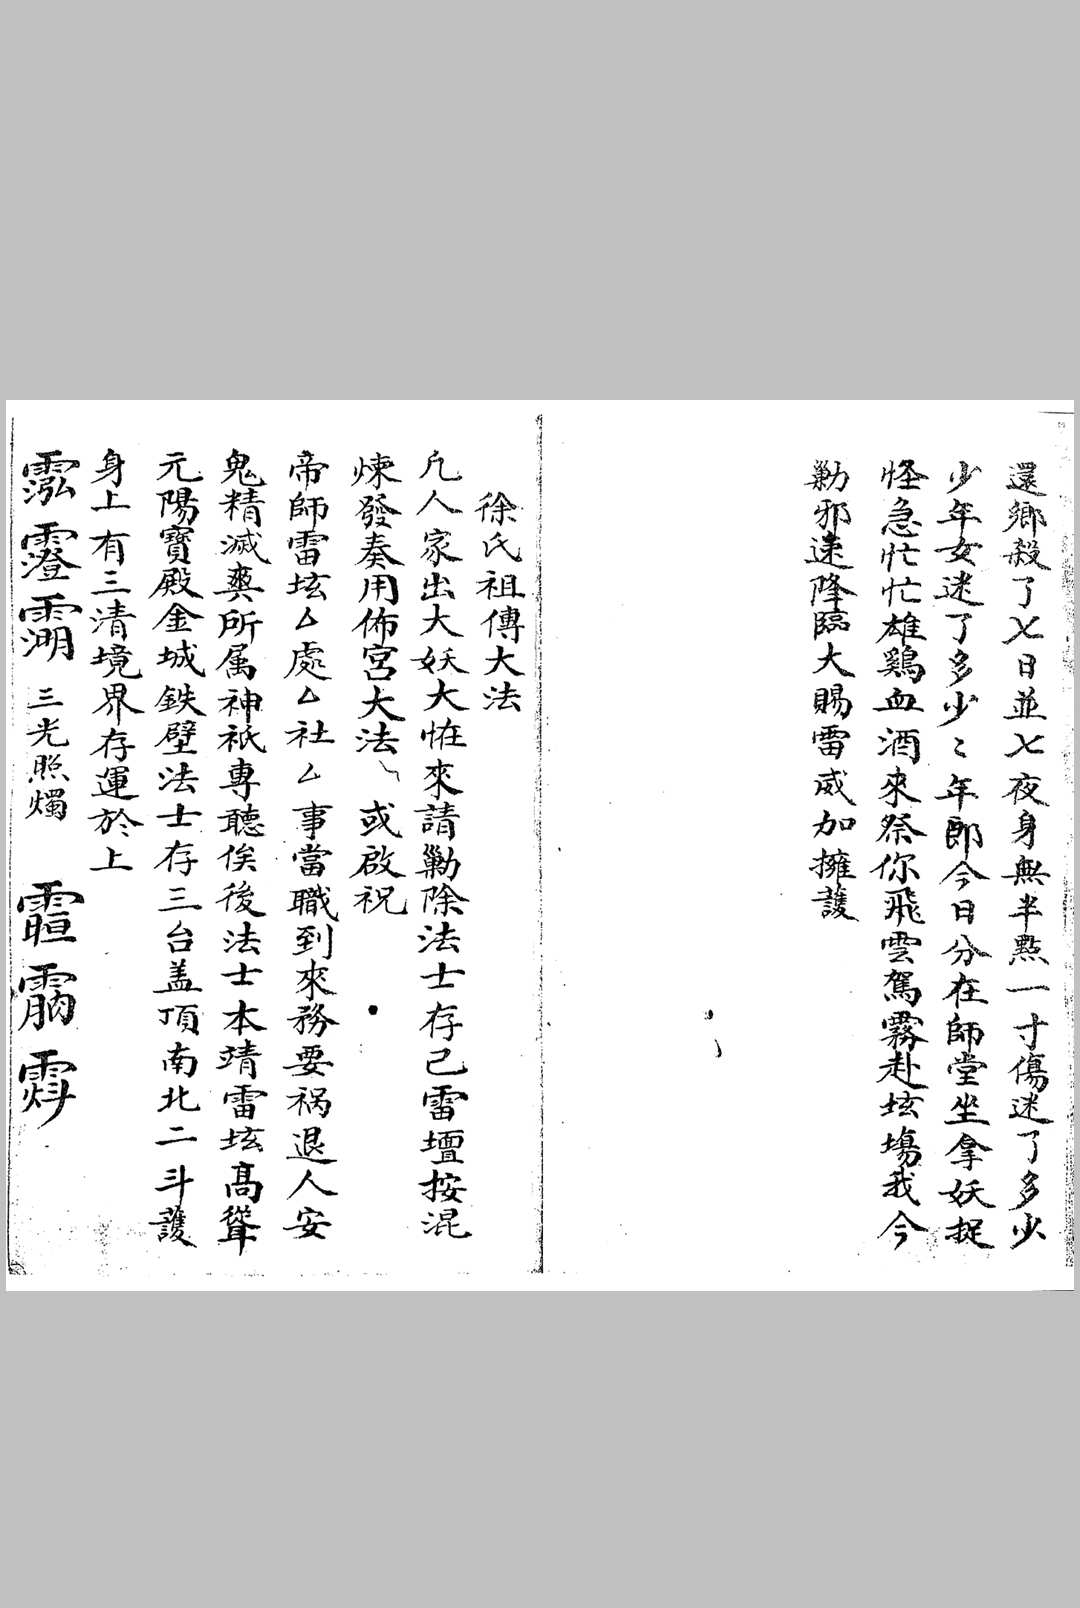 還鄉殺了七日並七夜身無半點一寸傷迷了多少
少年女迷了多少〻年郎今日分在師堂坐拿妖捉
怪急忙忙雄鷄血酒來祭你飛雲駕霧赴垓場我今
勦邪速降臨大賜雷威加擁護
徐氏祖傳大法
凡人家出大妖大恠來請勦除法士存己雷壇按混
煉發奏用佈宮大法或啟祝
帝師雷垓厶處厶社厶事當職到來務要禍退人安
鬼精滅爽所属神祇專聽俟後法士本靖雷垓高聳
元陽寶殿金城鉄壁法士存三台盖頂南北二斗護
身上有三清境界存運於上
三光照燭